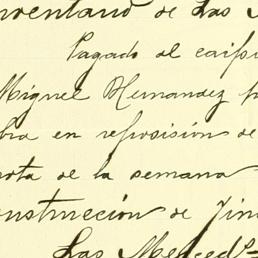 nventario de Las
Pagado al caips
Miguel Hernandez p
bra en reposisión de
nota de la semana
onstrucción de Jim
Las Merced